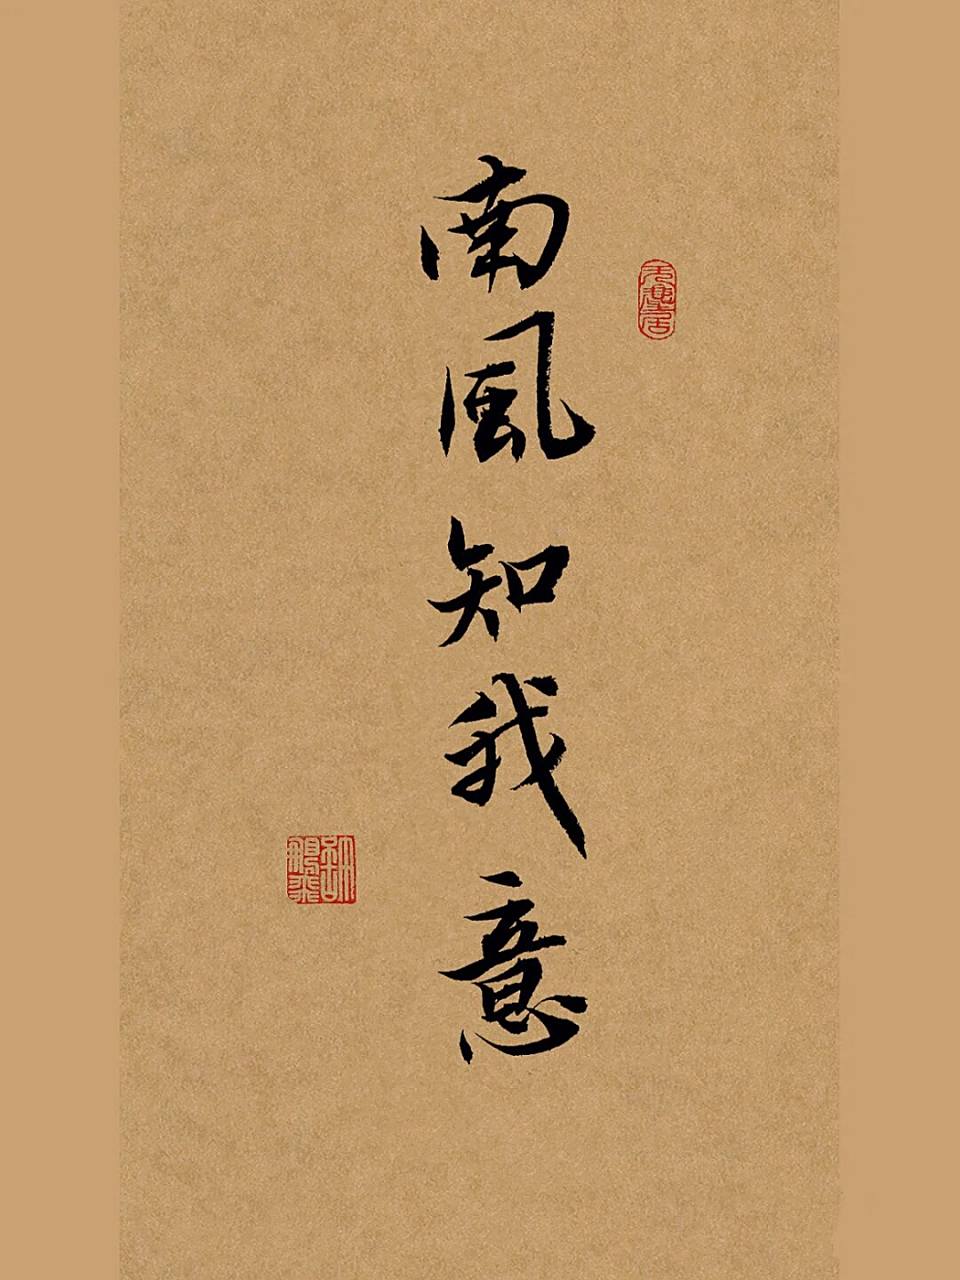 南風知我意